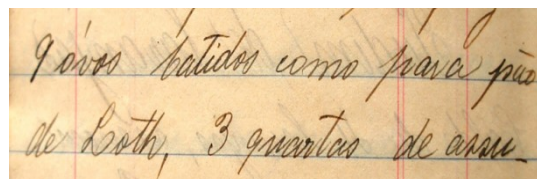 9 óvos batidos como para pão
de Loth, 3 quartas de assu-